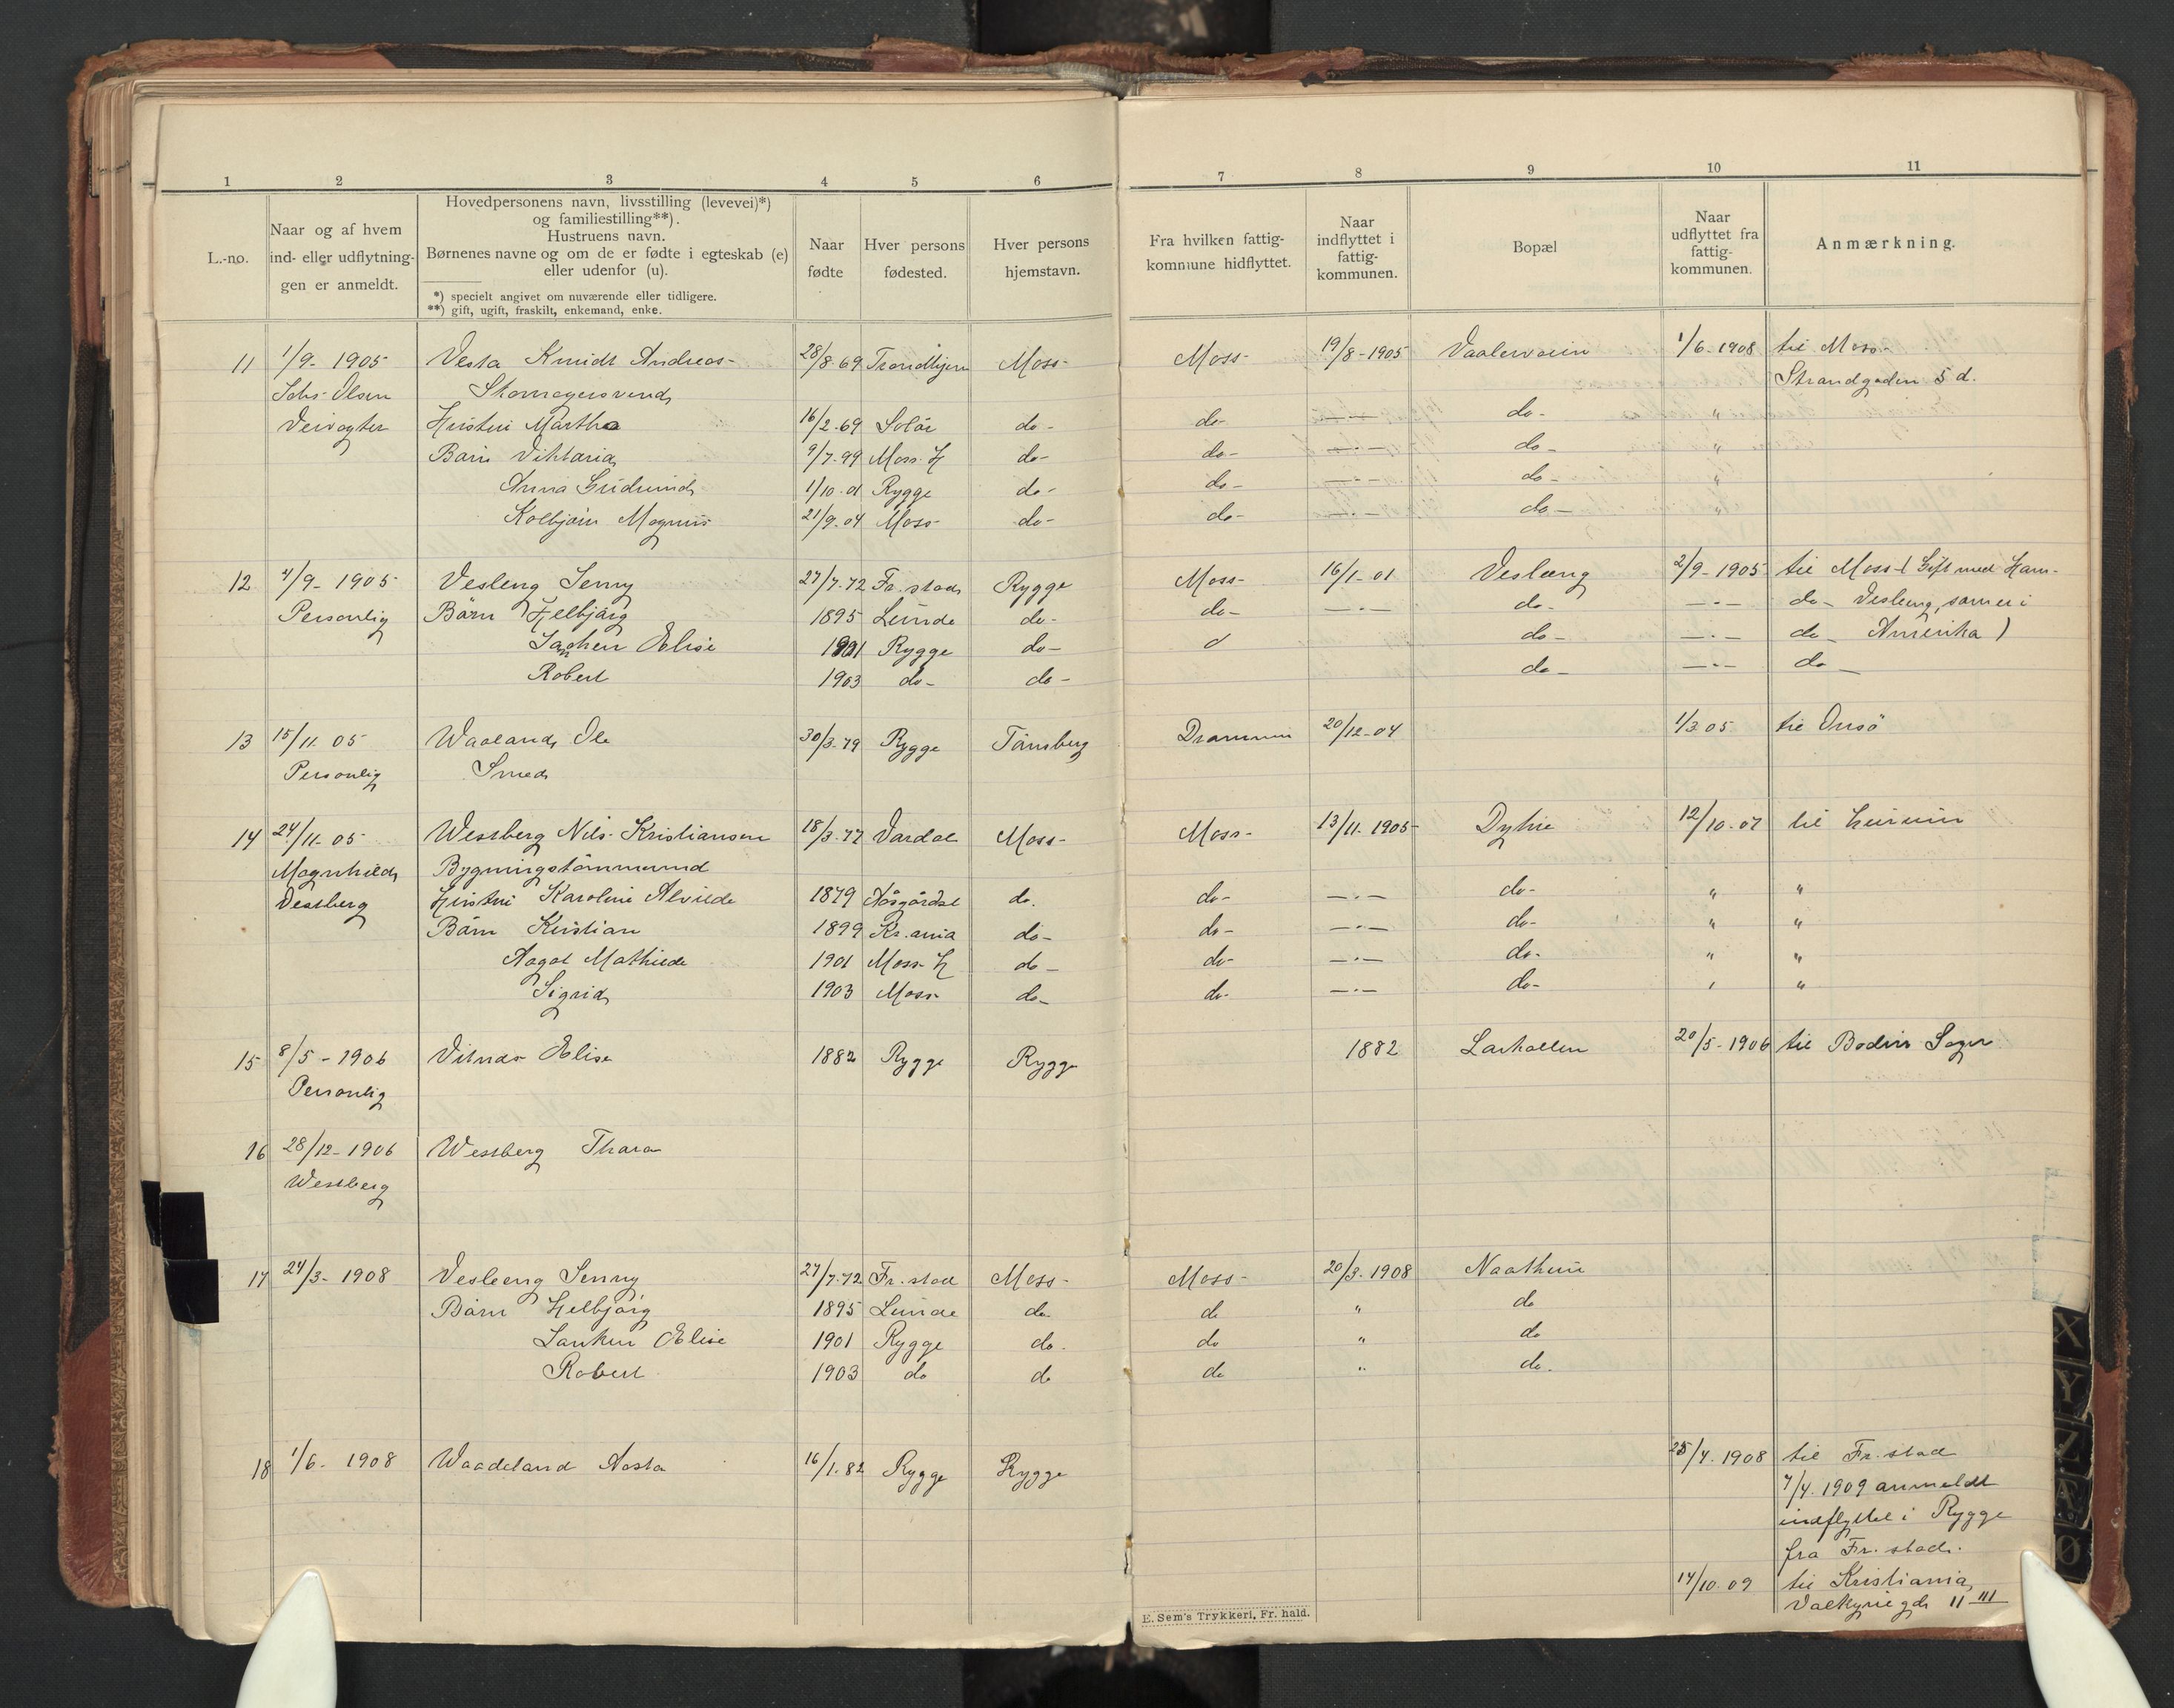 1 2 3 4 5 6 7 8 9 10 11
L.-no.
Naar og af hvem
ind- eller udflytnin-
gen er anmeldt.
Hovedpersonens navn, livsstilling (levevei)*)
og familiestilling**).
Hustruens navn.
Børnenes navne og om de er fødte i egteskab (e)
eller udenfor (u).
*) specielt angivet om nuværende eller tidligere.
**) gift, ugift, fraskilt, enkemand, enke.
Naar
fødte
Hver persons
fødested.
Hver persons
hjemstavn.
Fra hvilken fattig-
kommune hidflyttet.
Naar
indflyttet i
fattig-
kommunen.
Bopæl
Naar
udflyttet fra
fattig-
kommunen.
Anmærkning.
11 1/9- 1905 Vesta Knudt Andreas- 28/8-69 Trondhjem Moss- Moss- 19/8-1905 1/6-1908 til Moss-
Olsen Strandgaden 5 d.
Veivogter Hustru Martha 16/2-69 Solör do- do- —·— do- "
Barn Viktoria 9/7-99 Moss. H do- do- —·— do- "
Anna 1/10-01 Rygge do- do- —·— do- "
Kolbjörn Magnus 21/9-04 Moss- do- do- —·— do- "
12 4/9- 1905 Vesleng Jenny 27/7-72 Fr.stad Rygge Moss- 16/1-01 Vesleng 2/9-1905 til Moss- ( Gift med
Personlig Börn Helbjörg 1895 Lunde do- do- —·— do- —·— do- Vesleng, som er i
Elise 1901 Rygge do- d do- —·— do- Amerika )
Robert 1903 do- do- do- —·— do-
13 15/11 05 Waaland Ole 30/3-79 Rygge Tönsberg Drammen 20/12-04 1/3 05 til Onsö
Personlig Smed
14 24/11-05 Westberg Nils Kristiansen 18/3-77 Vardal Moss- Moss- 13/11-1905- 12/10-07 til
Magnhild Bygningstömmermand
Vestberg Hustru Karoline Alvilde 1879 Aasgårdst do. do- —·— do- " "
Börn Kristian 1899 Kr.ania do- do- —·— do- " "
Aagot Mathilde 1901 Moss- H do- do- —·— do- " "
Sigrid 1903 Moss- do- do- —·— do- " "
15 8/5-1906 Vilnas Elise 1882 Rygge Rygge 1882 Larkollen 20/5-1906 til
Personlig
16 28/12-1906 Westberg Thora
Westberg
17 24/3-1908 Vesleeng Jenny 27/7-72 Fr.stad Moss- Moss- 20/3-1908
Börn Helbjörg 1895 Lunde do. do " do
Elise 1901 Rygge do. do " do
Robert 1903 do do do " do.
18 1/6-1908 Waadeland Aasta 16/1-82 Rygge Rygge 25/4-1908 til Fr.stad
7/4-1909 anmeldt
indflyttet i Rygge
fra Fr.stad.
14/10-09 til Kristiania,
Valkyriegd 11 III
E. Sem's Trykkeri, Fr. hald.
X
Y
Z
Æ
Ø